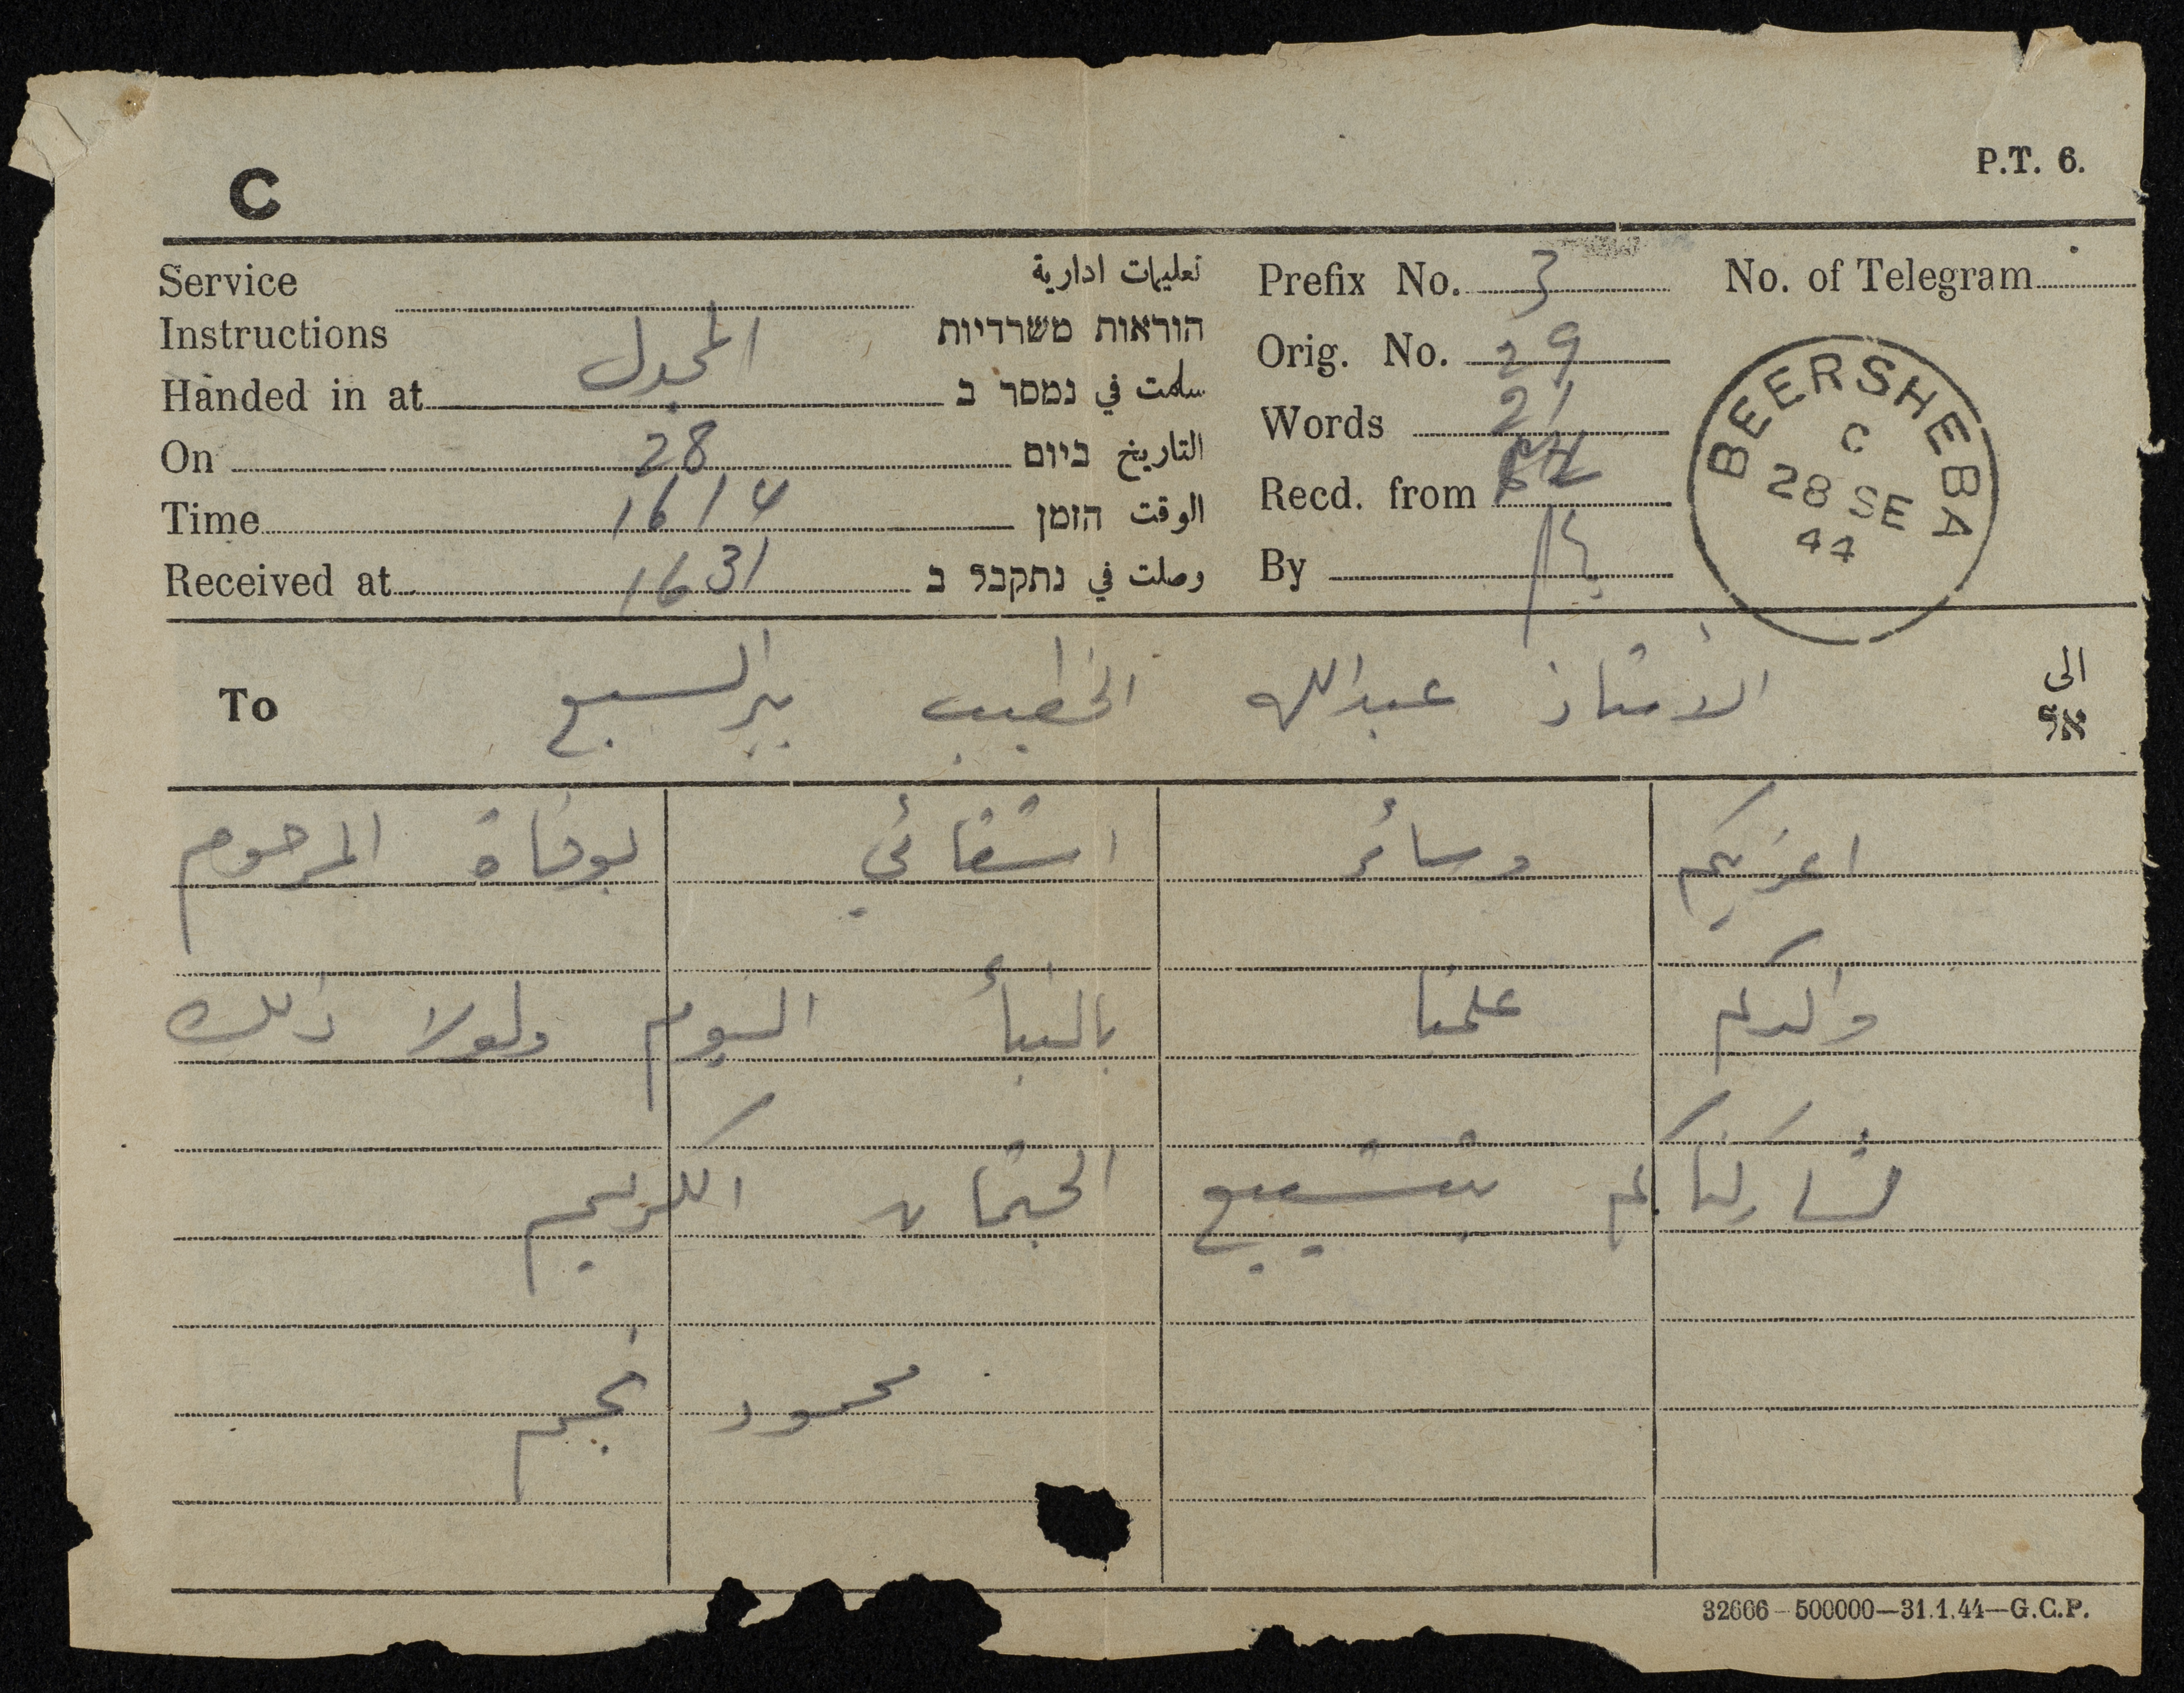 C
P.T. 6.
Service Instructions تعليمات ادارية
הוראות משרדיות
Handed in at المجدل سلمت في נמסר ב
On 28 التاريخ ביום
Time 1614 الوقت הזמן
Received at 1631 وصلت في נתקבל ב
Prefix No. 3
Orig. No. 29
Words 21
Recd. from
By
No. of Telegram
BEERSHEBA
C
28 SE
44
To الاستاذ عبدالله الخطيب بيرالسبع الى
אל
اعزيكم وسائر اشقائي بوفاة المرحوم
والدكم علمنا بالنبأ اليوم ولولا ذلك
لشاركناكم بتشييع الجثمان الكريم
محمود نجم
32606—500000—31.1.44—G.C.P.